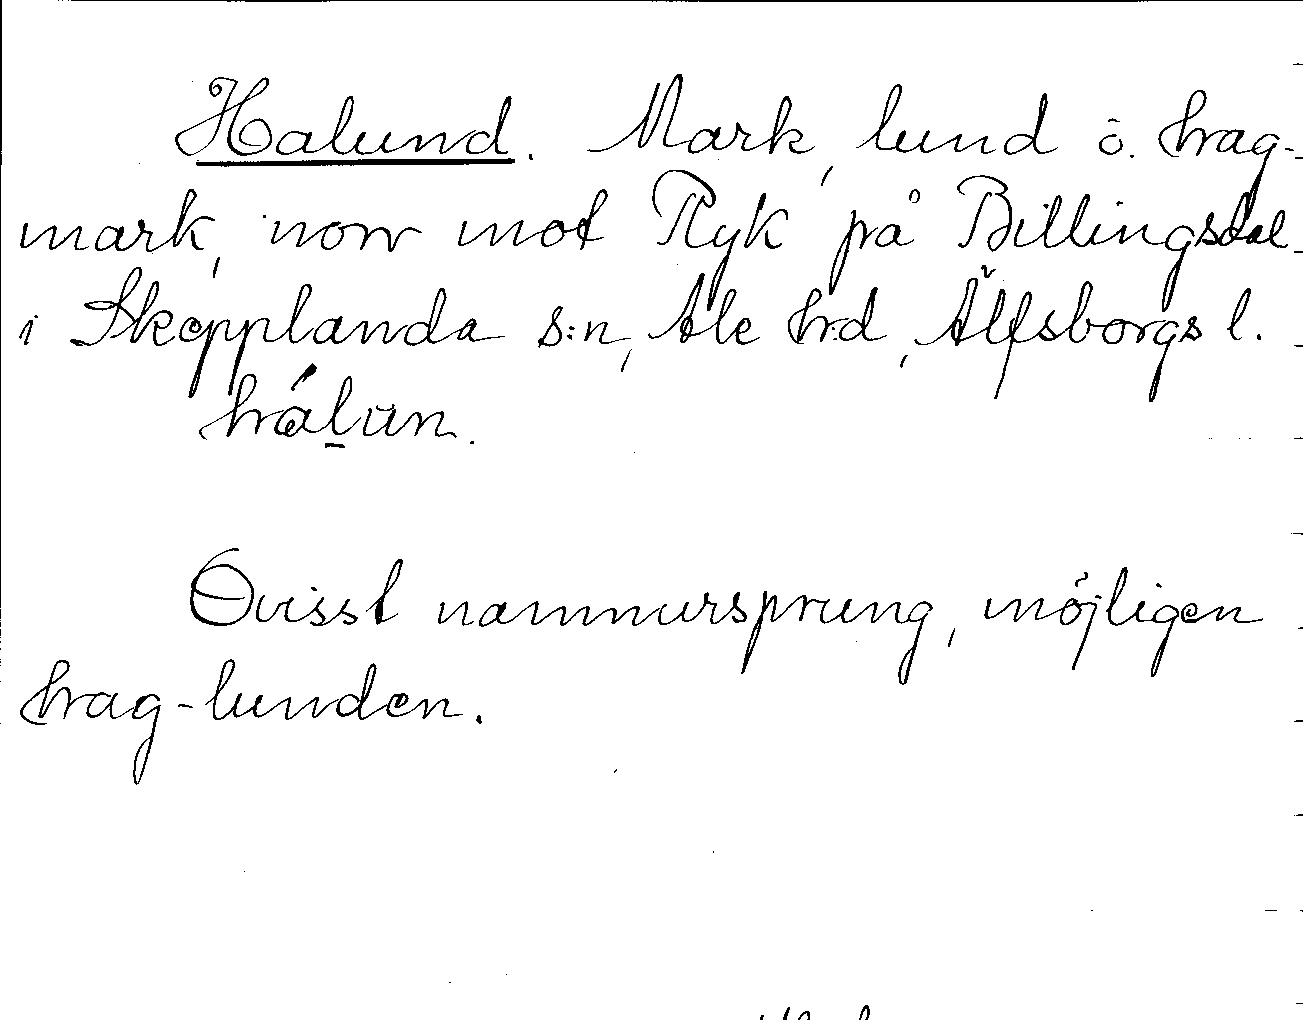 Halund. Mark, lund o. hag-
mark, norr mot Ryk på Billingsdal
i Skepplanda s:n, Ale hrd, Älfsborgs l.
hálun.
Ovisst namnursprung, möjligen
hag-lunden.